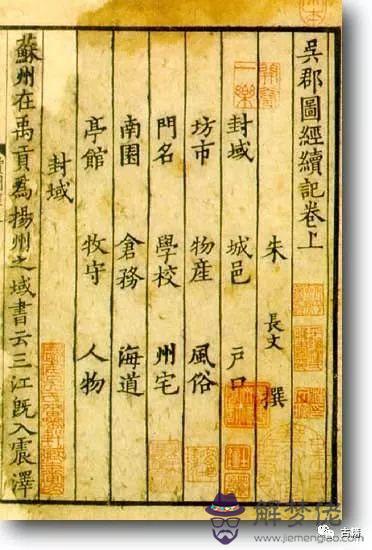 吳郡圖經續記卷上
朱 長文 撰
封域 城邑 戶口
坊市 物産 風俗
門名 學校 州宅
南園 倉務 海道
亭館 牧守 人物
封域
蘇州在禹貢爲揚州之域書云三江旣入震澤
解梦佬
www.jiemenglao.com
古籍